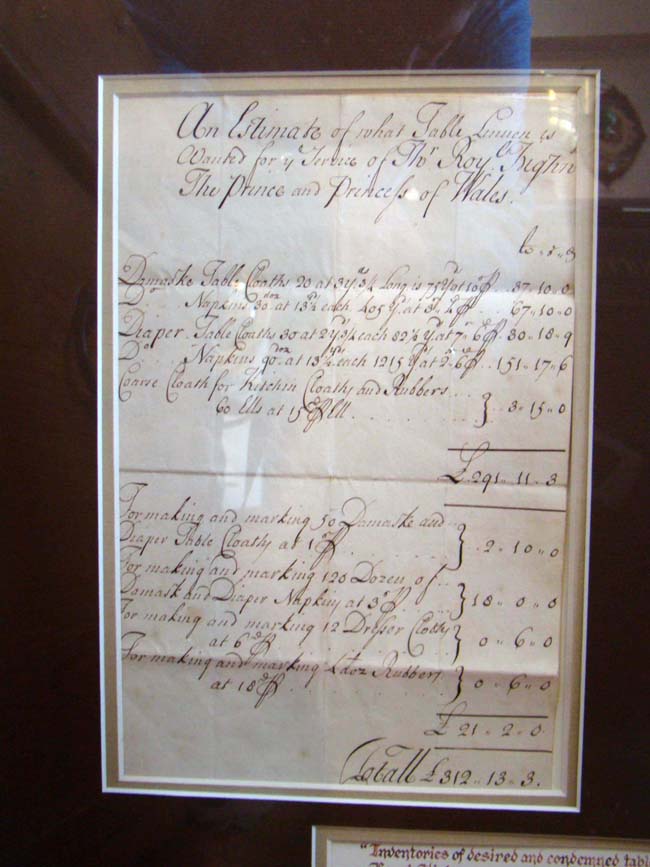 An Estimate of what Table Linnen is
Wanted for yͤ Service of Thʳ Roy.ˡˡ Highnˢ
The Prince and Princess of Wales.
£ s d
Damaske Table Cloaths 20 at 3 yᵈˢ ¾ Long is 75 yᵈˢ at 10ˢ ℔ .. 37 .. 10 .. 0
Dᵒ .. Napkins 30 doz. at 13 yᵈ ½ each 405 yᵈˢ at 3ˢ 4ᵈ ℔ .. 67 .. 10 .. 0
Diaper Table Cloaths 30 at 2 yᵈˢ ¾ each 82½ yᵈ at 7ˢ 6ᵈ ℔ .. 30 .. 18 .. 9
Dᵒ .. Napkins 90 doz at 13 yᵈˢ ½ each 1215 yᵈˢ at 2ˢ 6ᵈ ℔ .. 151 .. 17 .. 6
Coarse Cloath for Kitchin Cloaths and Rubbers ...
60 Ells at 15ᵈ ℔ Ell. } 3 .. 15 .. 0
£ 291 .. 11 .. 3
For making and marking 50 Damaske and ..
Diaper Table Cloaths at 1ˢ ℔ } 2 .. 10 .. 0
For making and marking 120 Dozen of ..
Damask and Diaper Napkins at 3ˢ ℔ } 18 .. 0 .. 0
For making and marking 12 Dresser Cloaths
at 6ᵈ ℔ } 0 .. 6 .. 0
For making and marking 4 doz Rubbers
at 18ᵈ ℔ } 0 .. 6 .. 0
£ 21 .. 2 .. 0
Totall £ 312 .. 13 .. 3.
"Inventories of desired and condemned tabl